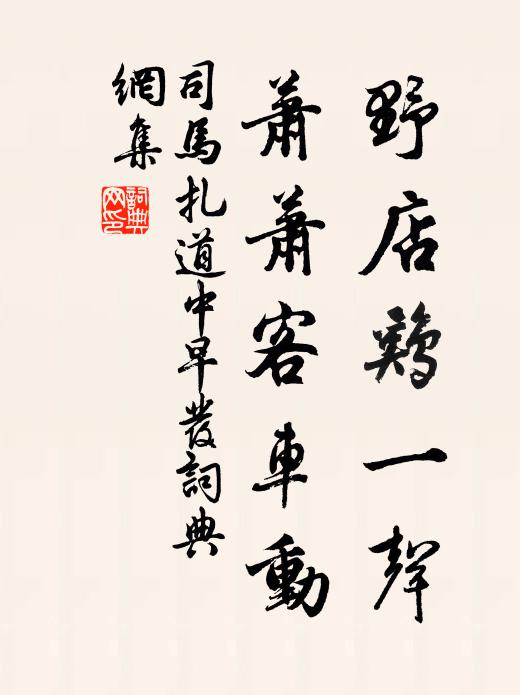 野店鷄一聲
蕭蕭客車動
司馬扎道中早發詞典
網集
詞典
网印